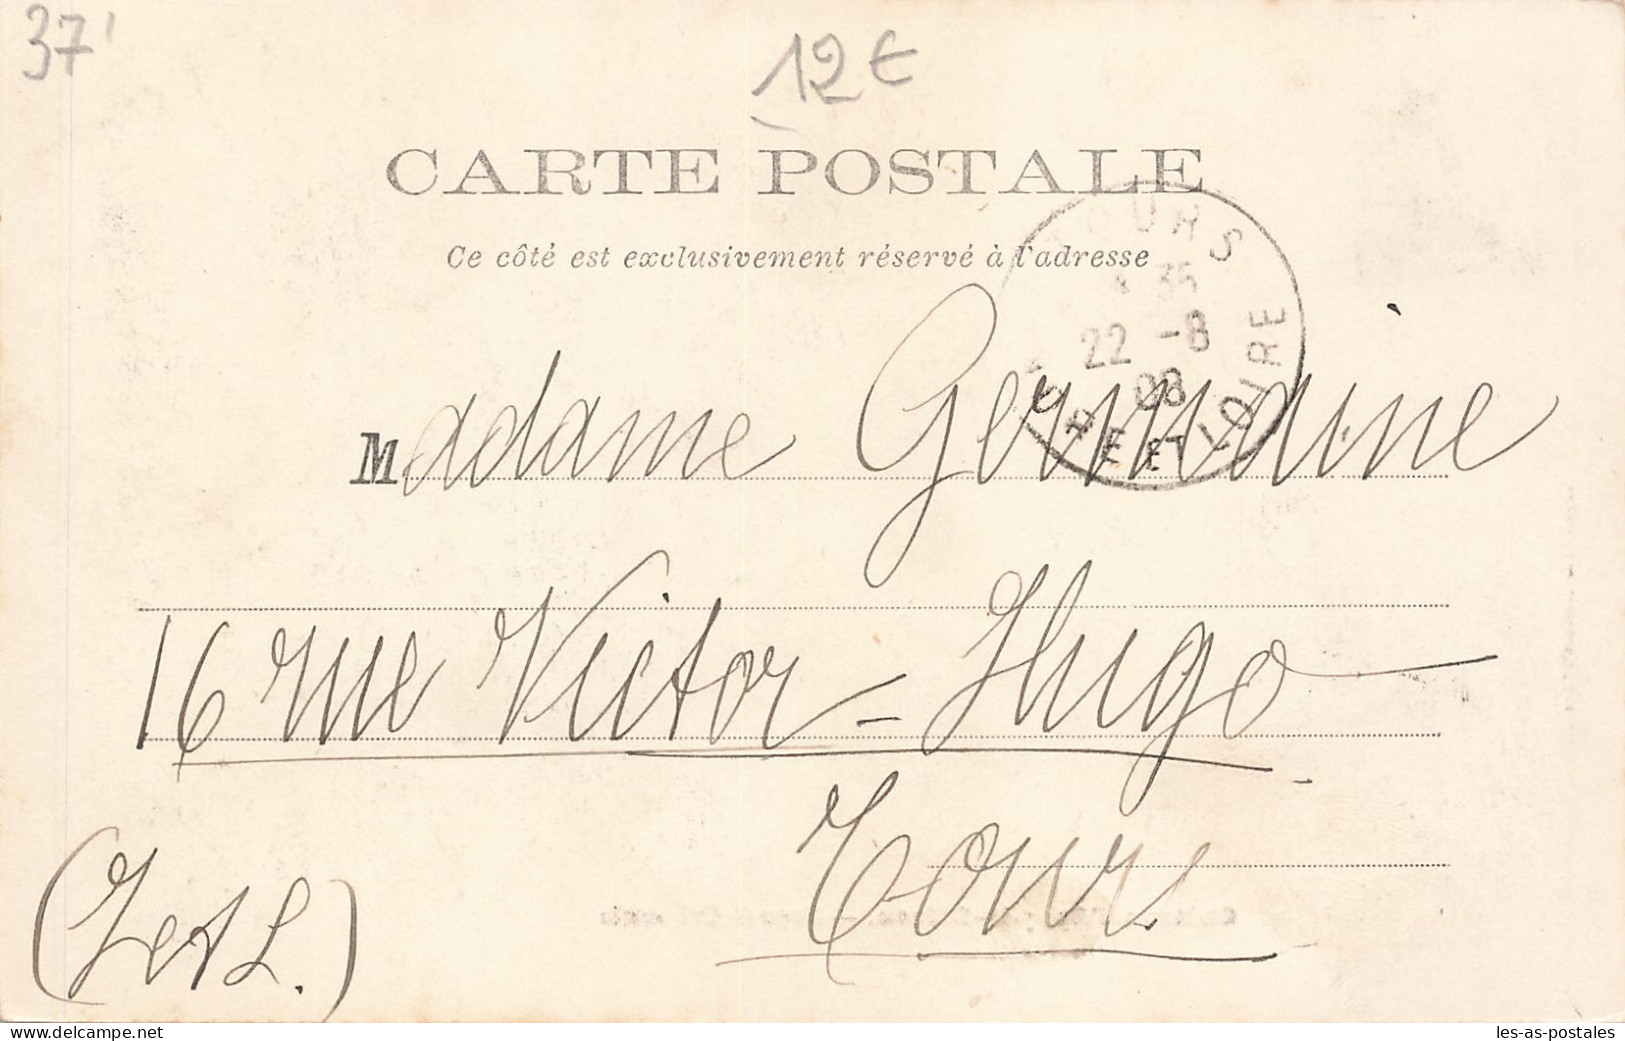 37'
12€
CARTE POSTALE
Ce côté est exclusivement réservé à l'adresse
TOURS
* 35
22 -8
08
INDRE ET LOIRE
Madame Germaine
16 rue Victor-Hugo
Tours
(I et L.)
www.delcampe.net
les-as-postales